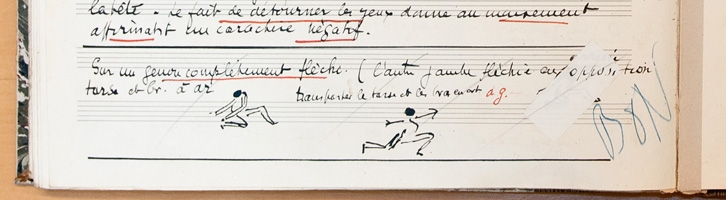 la tête. Le fait de détourner les yeux donne au mouvement
affirmatif un caractère négatif.
Sur un genou complètement flêché. (L'autre jambe flêchie en opposition
torse et br. à ar transporter le torse et les bras en avt a g.
BON